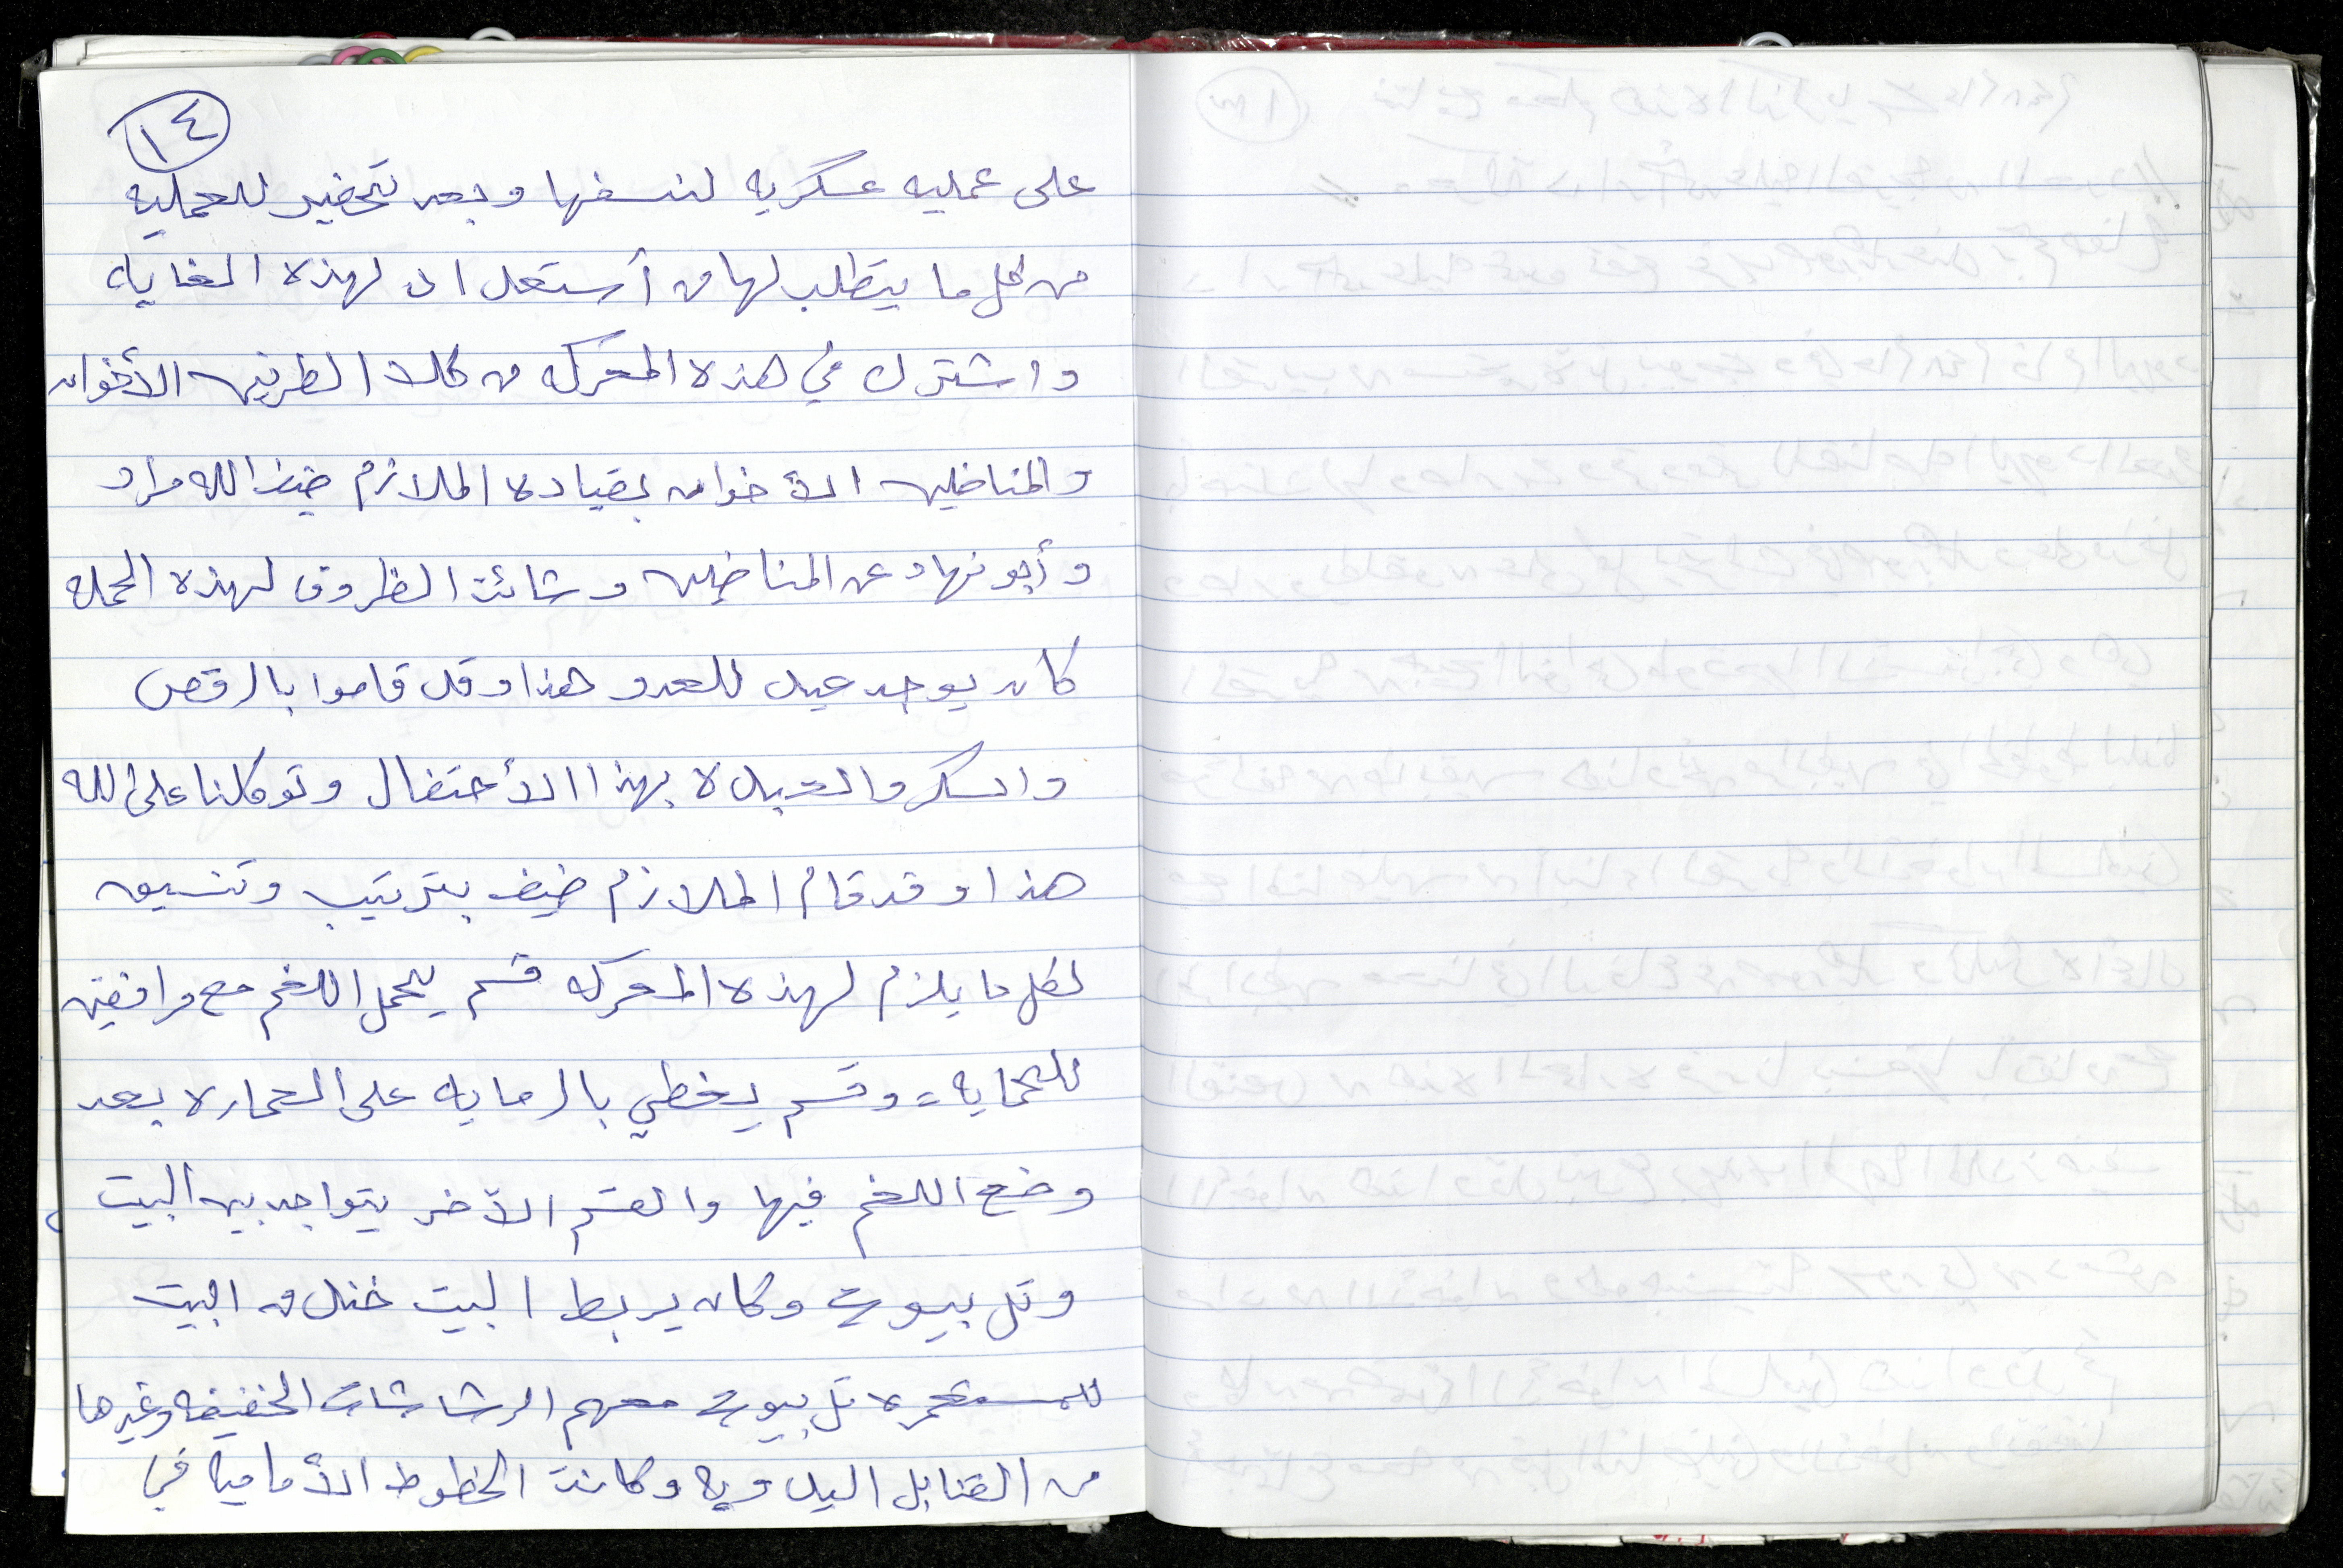 ١٤
على عمليه عسكريه لنسفها وبعد تحضير للعمليه
من كل ما يتطلب لها من أستعداد لهذه الغايه
واشترك في هذه المعركه من كلا الطرفين الأخوان
والمناضلين الأخوان بقياده الملازم ضيف الله مراد
وأبو نهاد عن المناضلين وشائت الظروف لهذه الحمله
كان يوجد عيد للعدو هذا وقد قاموا بالرقص
والسكر والعبده بهذا الأحتفال وتوكلنا على الله
هذا وقد قام الملازم ضيف بترتيب وتنسيق
لكل ما يلزم لهذه المعركه قسم يحمل اللغم مع مرافقين
للحمايه = وقسم يغطي بالرمايه على العماره بعد
وضع اللغم فيها والقسم الآخر يتواجد بين البيت
وتل بيوت وكان يربط البيت خندق من البيت
للمستعمره تل بيوت معهم الرشاشات الخفيفه وغيرها
من القنابل اليدويه وكانت الخطوط الأماميه في